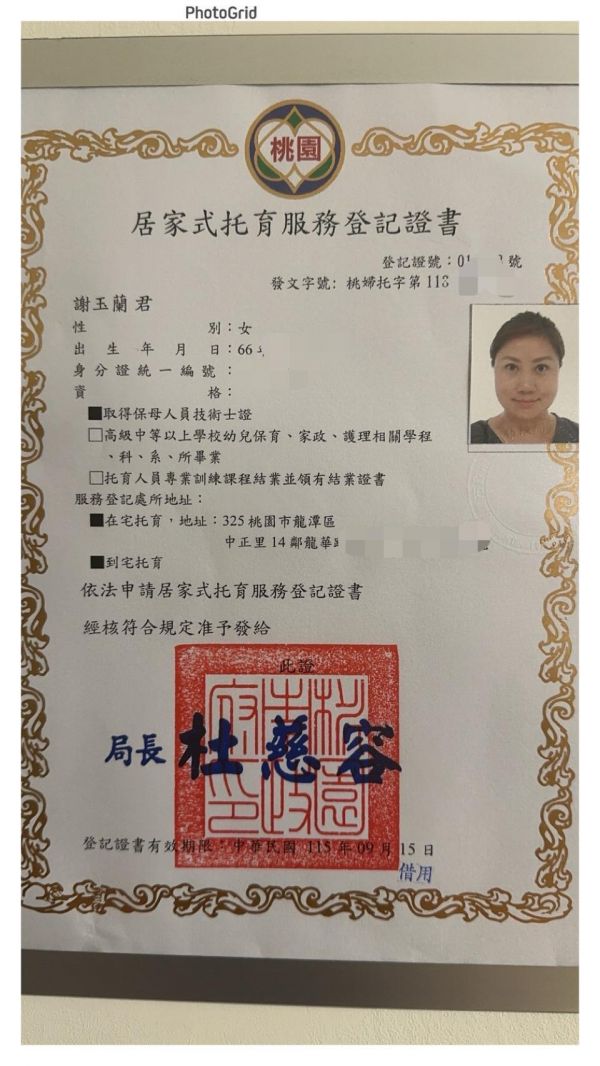 PhotoGrid
桃園
居家式托育服務登記證書
登記證號：01 號
發文字號: 桃婦托字第 113
謝玉蘭 君
性別：女
出生年月日：66
身分證統一編號：
資格：
■取得保母人員技術士證
□高級中等以上學校幼兒保育、家政、護理相關學程
、科、系、所畢業
□托育人員專業訓練課程結業並領有結業證書
服務登記處所地址：
■在宅托育，地址：325 桃園市龍潭區
中正里 14 鄰龍華
■到宅托育
依法申請居家式托育服務登記證書
經核符合規定准予發給
此證
桃園市政府印
局長 杜慈容
登記證書有效期限：中華民國 115 年 09 月 15 日
借用